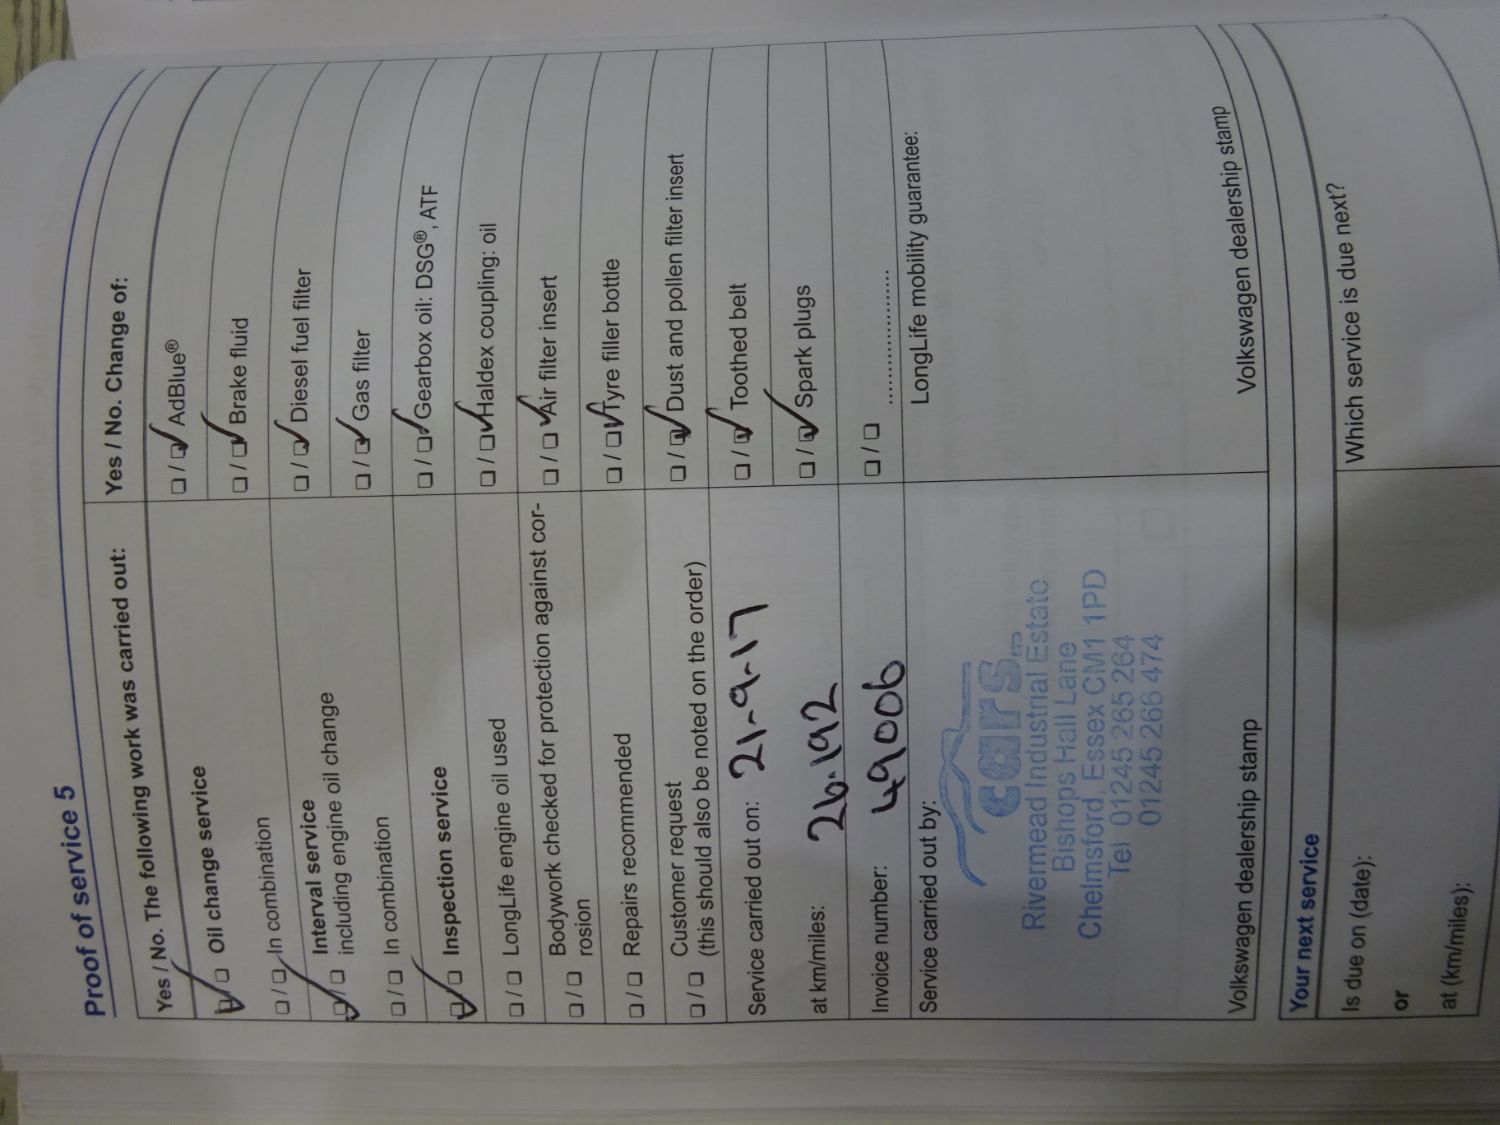 Proof of service 5
Yes / No. The following work was carried out:
☑ / ☐ Oil change service
☐ / ☐ In combination
☑ / ☐ Interval service
including engine oil change
☐ / ☐ In combination
☑ / ☐ Inspection service
☐ / ☐ LongLife engine oil used
☐ / ☐ Bodywork checked for protection against cor-
rosion
☐ / ☐ Repairs recommended
☐ / ☐ Customer request
(this should also be noted on the order)
Service carried out on: 21-9-17
at km/miles: 26.192
Invoice number: 49006
Service carried out by:
cars LTD
Rivermead Industrial Estate
Bishops Hall Lane
Chelmsford, Essex CM1 1PD
Tel 01245 265 264
01245 266 474
Volkswagen dealership stamp
Yes / No. Change of:
☐ / ☑ AdBlue®
☐ / ☑ Brake fluid
☐ / ☑ Diesel fuel filter
☐ / ☑ Gas filter
☐ / ☑ Gearbox oil: DSG®, ATF
☐ / ☑ Haldex coupling: oil
☐ / ☑ Air filter insert
☐ / ☑ Tyre filler bottle
☐ / ☑ Dust and pollen filter insert
☐ / ☑ Toothed belt
☐ / ☑ Spark plugs
☐ / ☐ ....................
LongLife mobility guarantee:
Volkswagen dealership stamp
Your next service
Is due on (date):
or
at (km/miles):
Which service is due next?